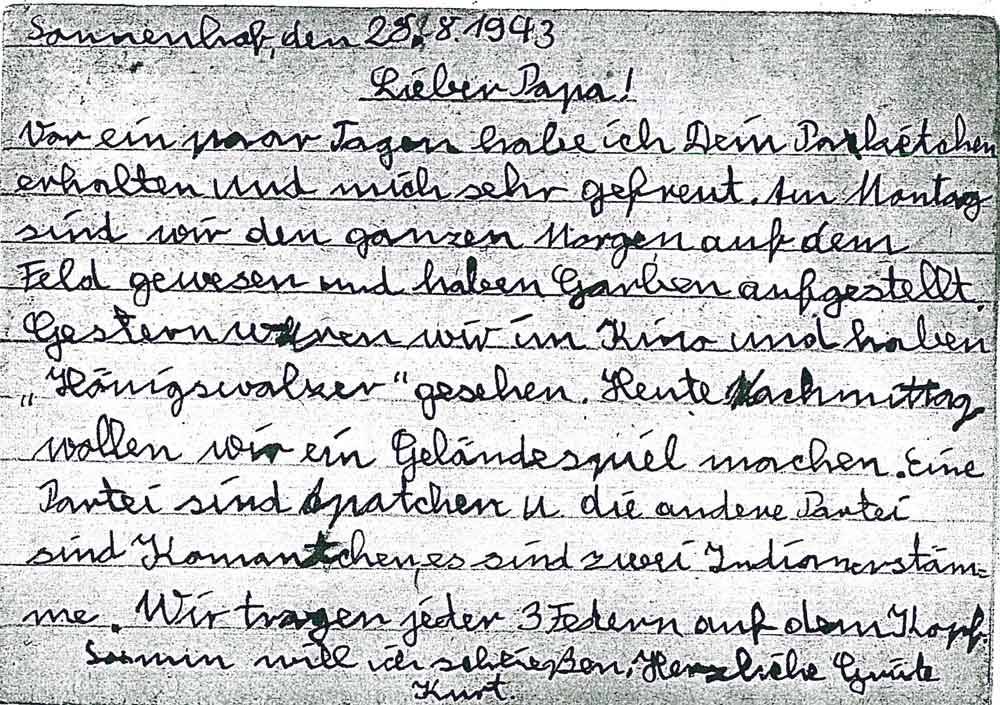 Sonnenhof, den 28.8.1943
Lieber Papa!
Vor ein paar Tagen habe ich Dein Parketchen
erhalten und mich sehr gefreut. Am Montag
sind wir den ganzen Morgen auf dem
Feld gewesen und haben Garben aufgestellt.
Gestern waren wir im Kino und haben
„Königswalzer“ gesehen. Heute Nachmittag
wollen wir ein Geländespiel machen. Eine
Partei sind Apatchen u die andere Partei
sind Komantchen, es sind zwei Indianerstäm=
me. Wir tragen jeder 3 Federn auf dem Kopf.
So nun will ich schließen, Herzliche Grüße
Kurt.